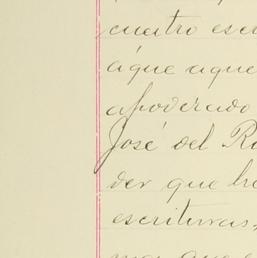 cuatro escri
á que aque
apoderado
José del Ro
der que he
escrituras,
mas que e